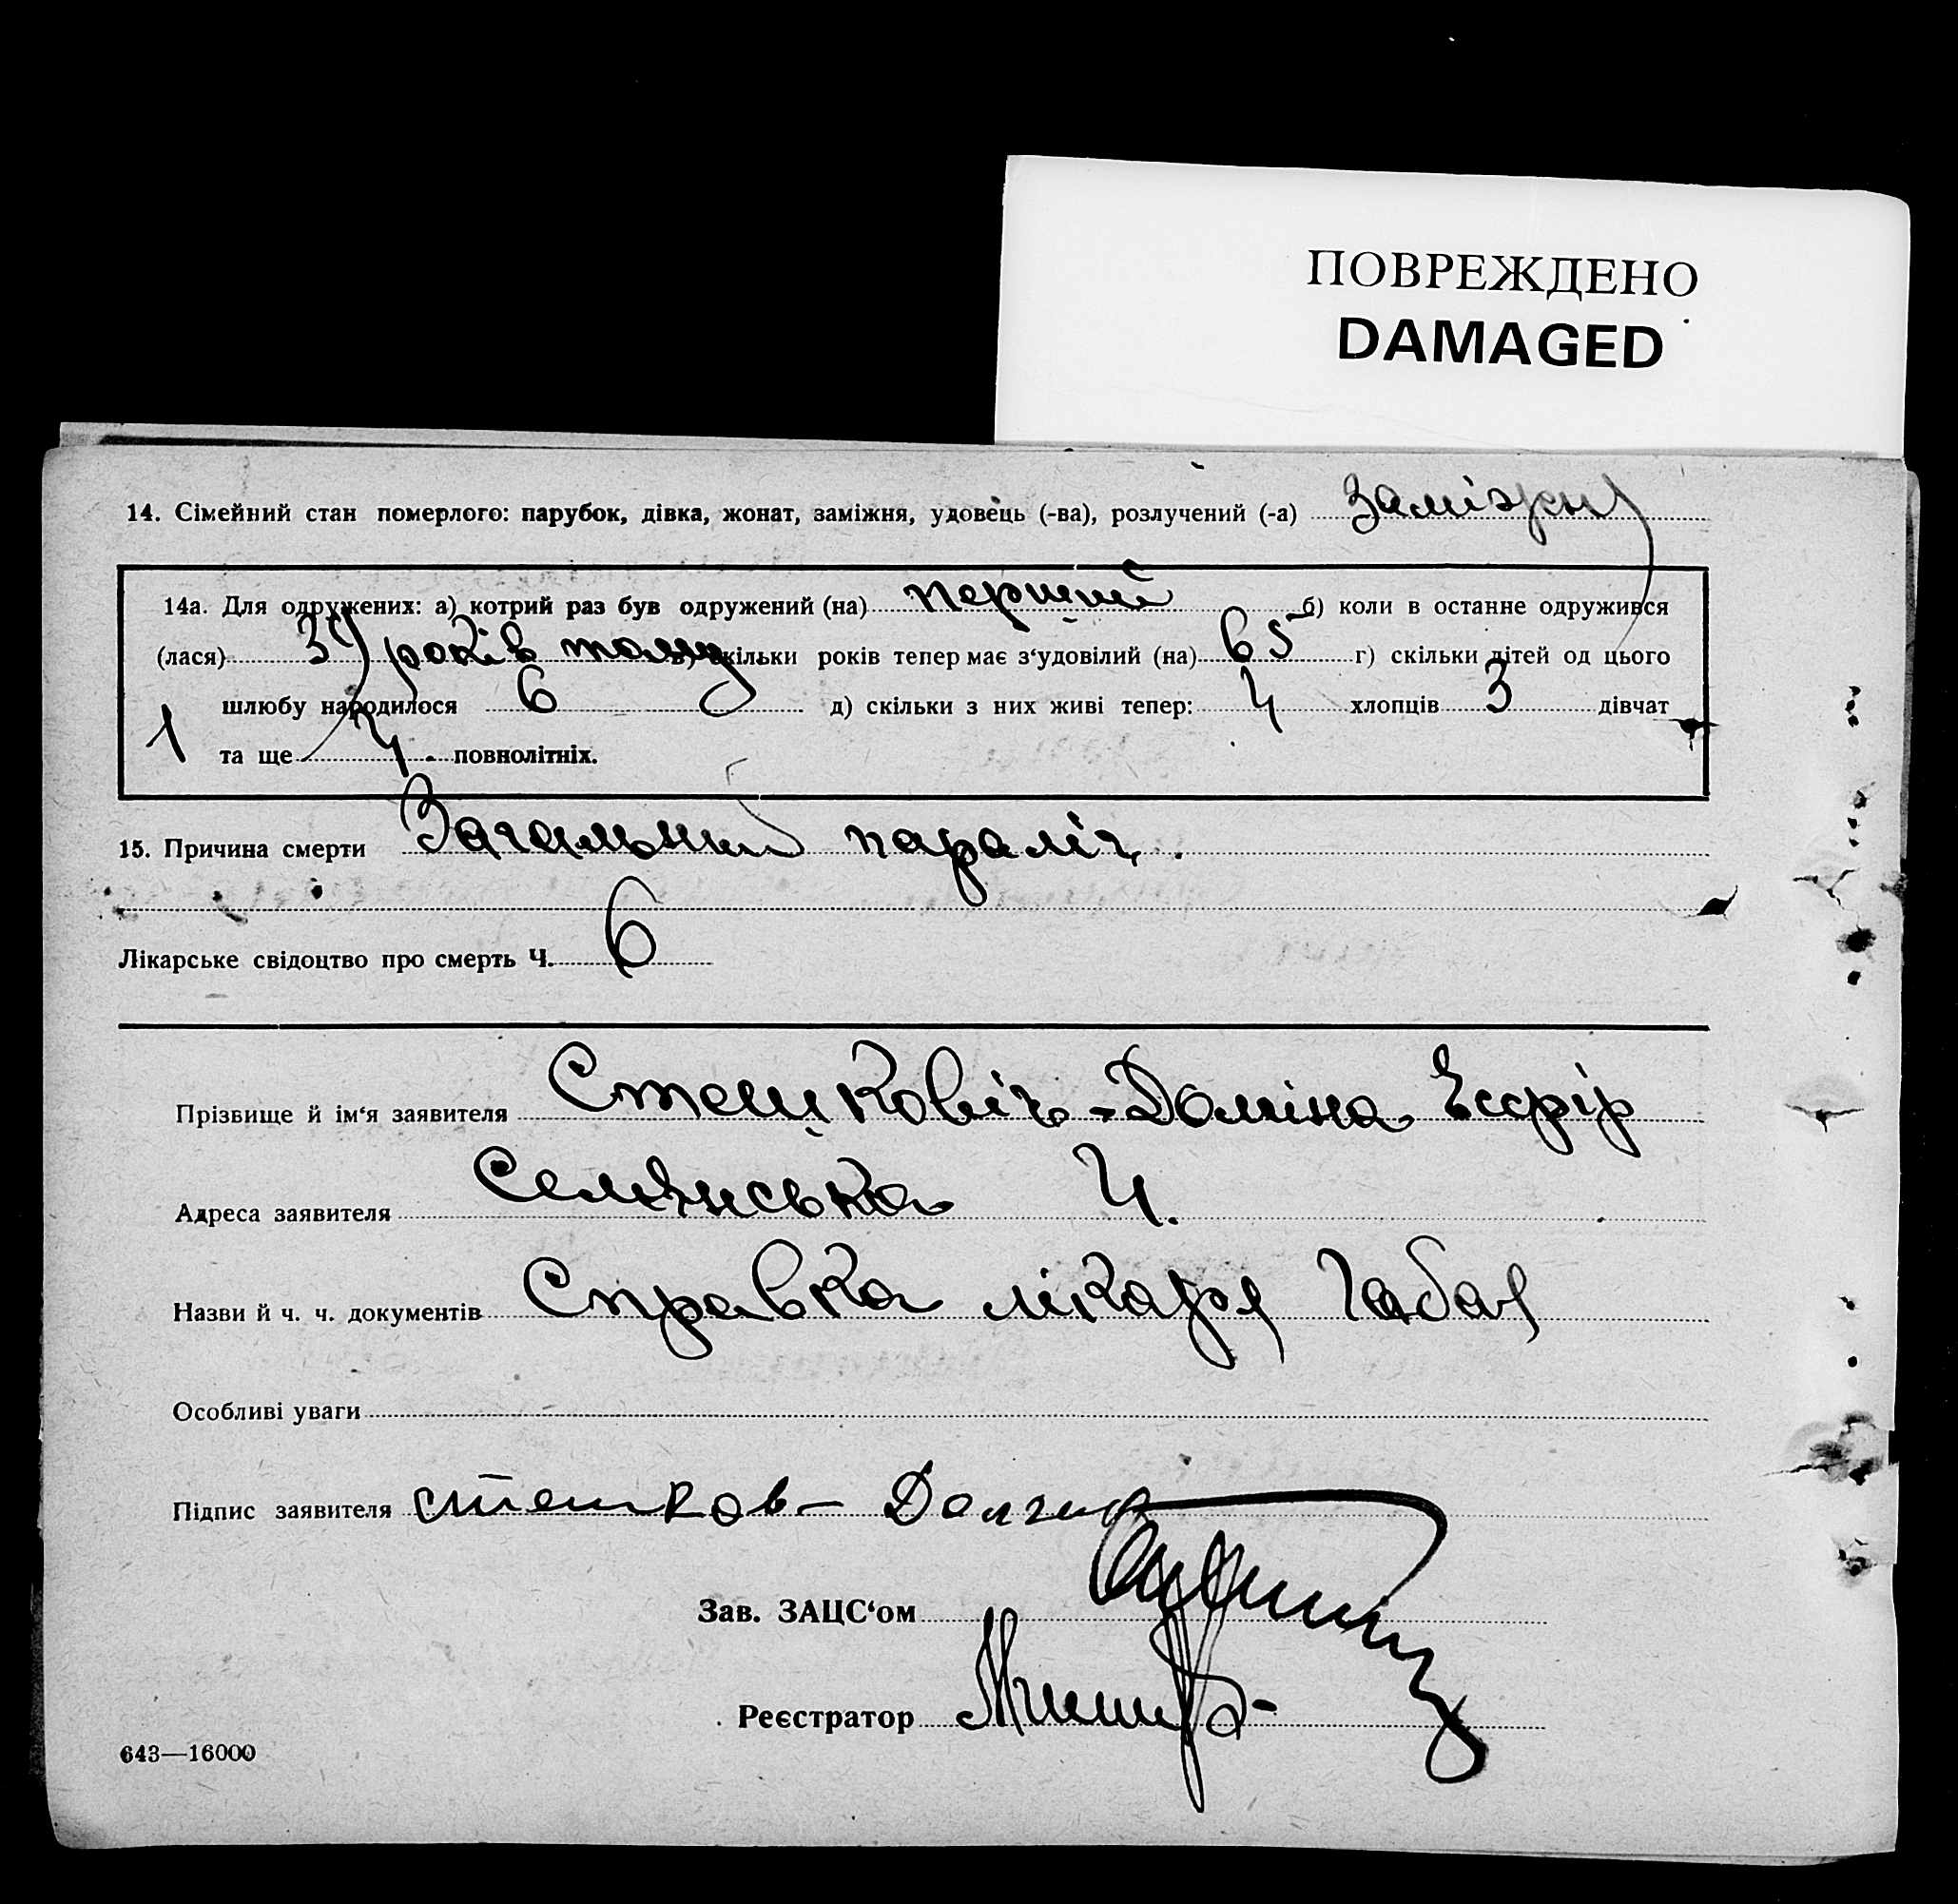 ПОВРЕЖДЕНО
DAMAGED
14. Сімейний стан померлого: парубок, дівка, жонат, заміжня, удовець (-ва), розлучений (-а) Заміжня
14а. Для одружених: а) котрий раз був одружений (на) перший б) коли в останне одружився
(лася) років тому в) скільки років тепер має з‘удовілий (на) 65 г) скільки дітей од цього
шлюбу народилося 6 д) скільки з них живі тепер: 4 хлопців 3 дівчат
1 та ще 4. повнолітніх.
15. Причина смерти Загальний параліч.
Лікарське свідоцтво про смерть Ч. 6
Прізвище й ім‘я заявителя Стецкович-Доліна Есфір
Адреса заявителя 4.
Назви й ч. ч. документів Справка лікаря Габая
Особливі уваги
Підпис заявителя
Зав. ЗАЦС‘ом
Реєстратор
643—16000